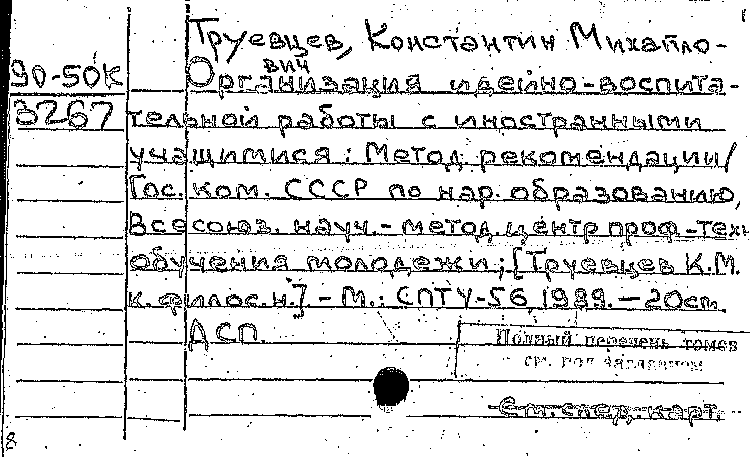 Труевцев, Константин Михайло-
вич
90-50к Организация идейно-воспита-
3267 тельной работы с иностранными
учащимися: Метод. рекомендации/
Гос. ком. СССР по нар. образованию,
Всесоюз. науч.-метод. центр проф.-техн.
обучения молодежи; [Труевцев К.М.
к.филос.н.] - М.: СПТУ-56, 1989. - 20 см.
АСП.
Полный перечень томов
см. под заглавием
См. след. карт.
8